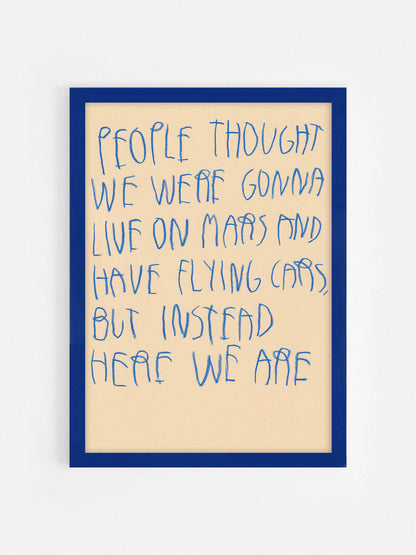 PEOPLE THOUGHT
WE WERE GONNA
LIVE ON MARS AND
HAVE FLYING CARS,
BUT INSTEAD
HERE WE ARE